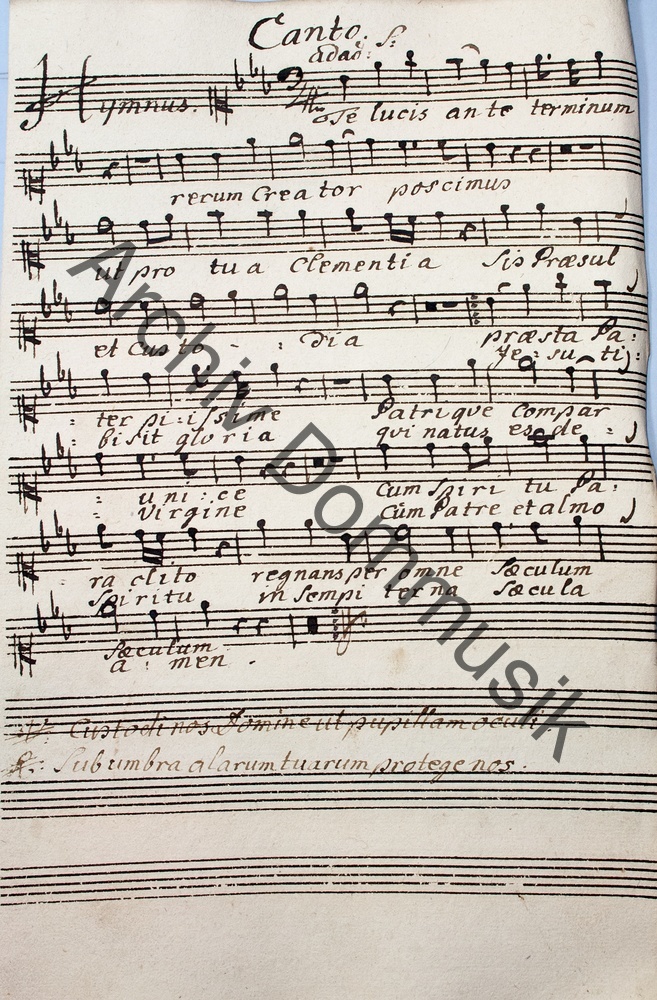 Canto. S:
adaō:
Hymnus. Te lucis ante terminum
rerum Creator poscimus
ut pro tua Clementia Sis Præsul
et Custo - - dia præsta Pa:
Je: su ti:
: ter pi:issime Patrique compar
: bi sit gloria qui natus es de :
: uni:ce Cum Spiri tu Pa:
: Virgine Cum Patre et almo
ra clito regnans per omne Sæculum
Spiritu in Sempi terna Sæcula
Sæculum
a : men .
Custodi nos Domine ut pupillam oculi
Sub umbra alarum tuarum protege nos.
Archiv Dommusik